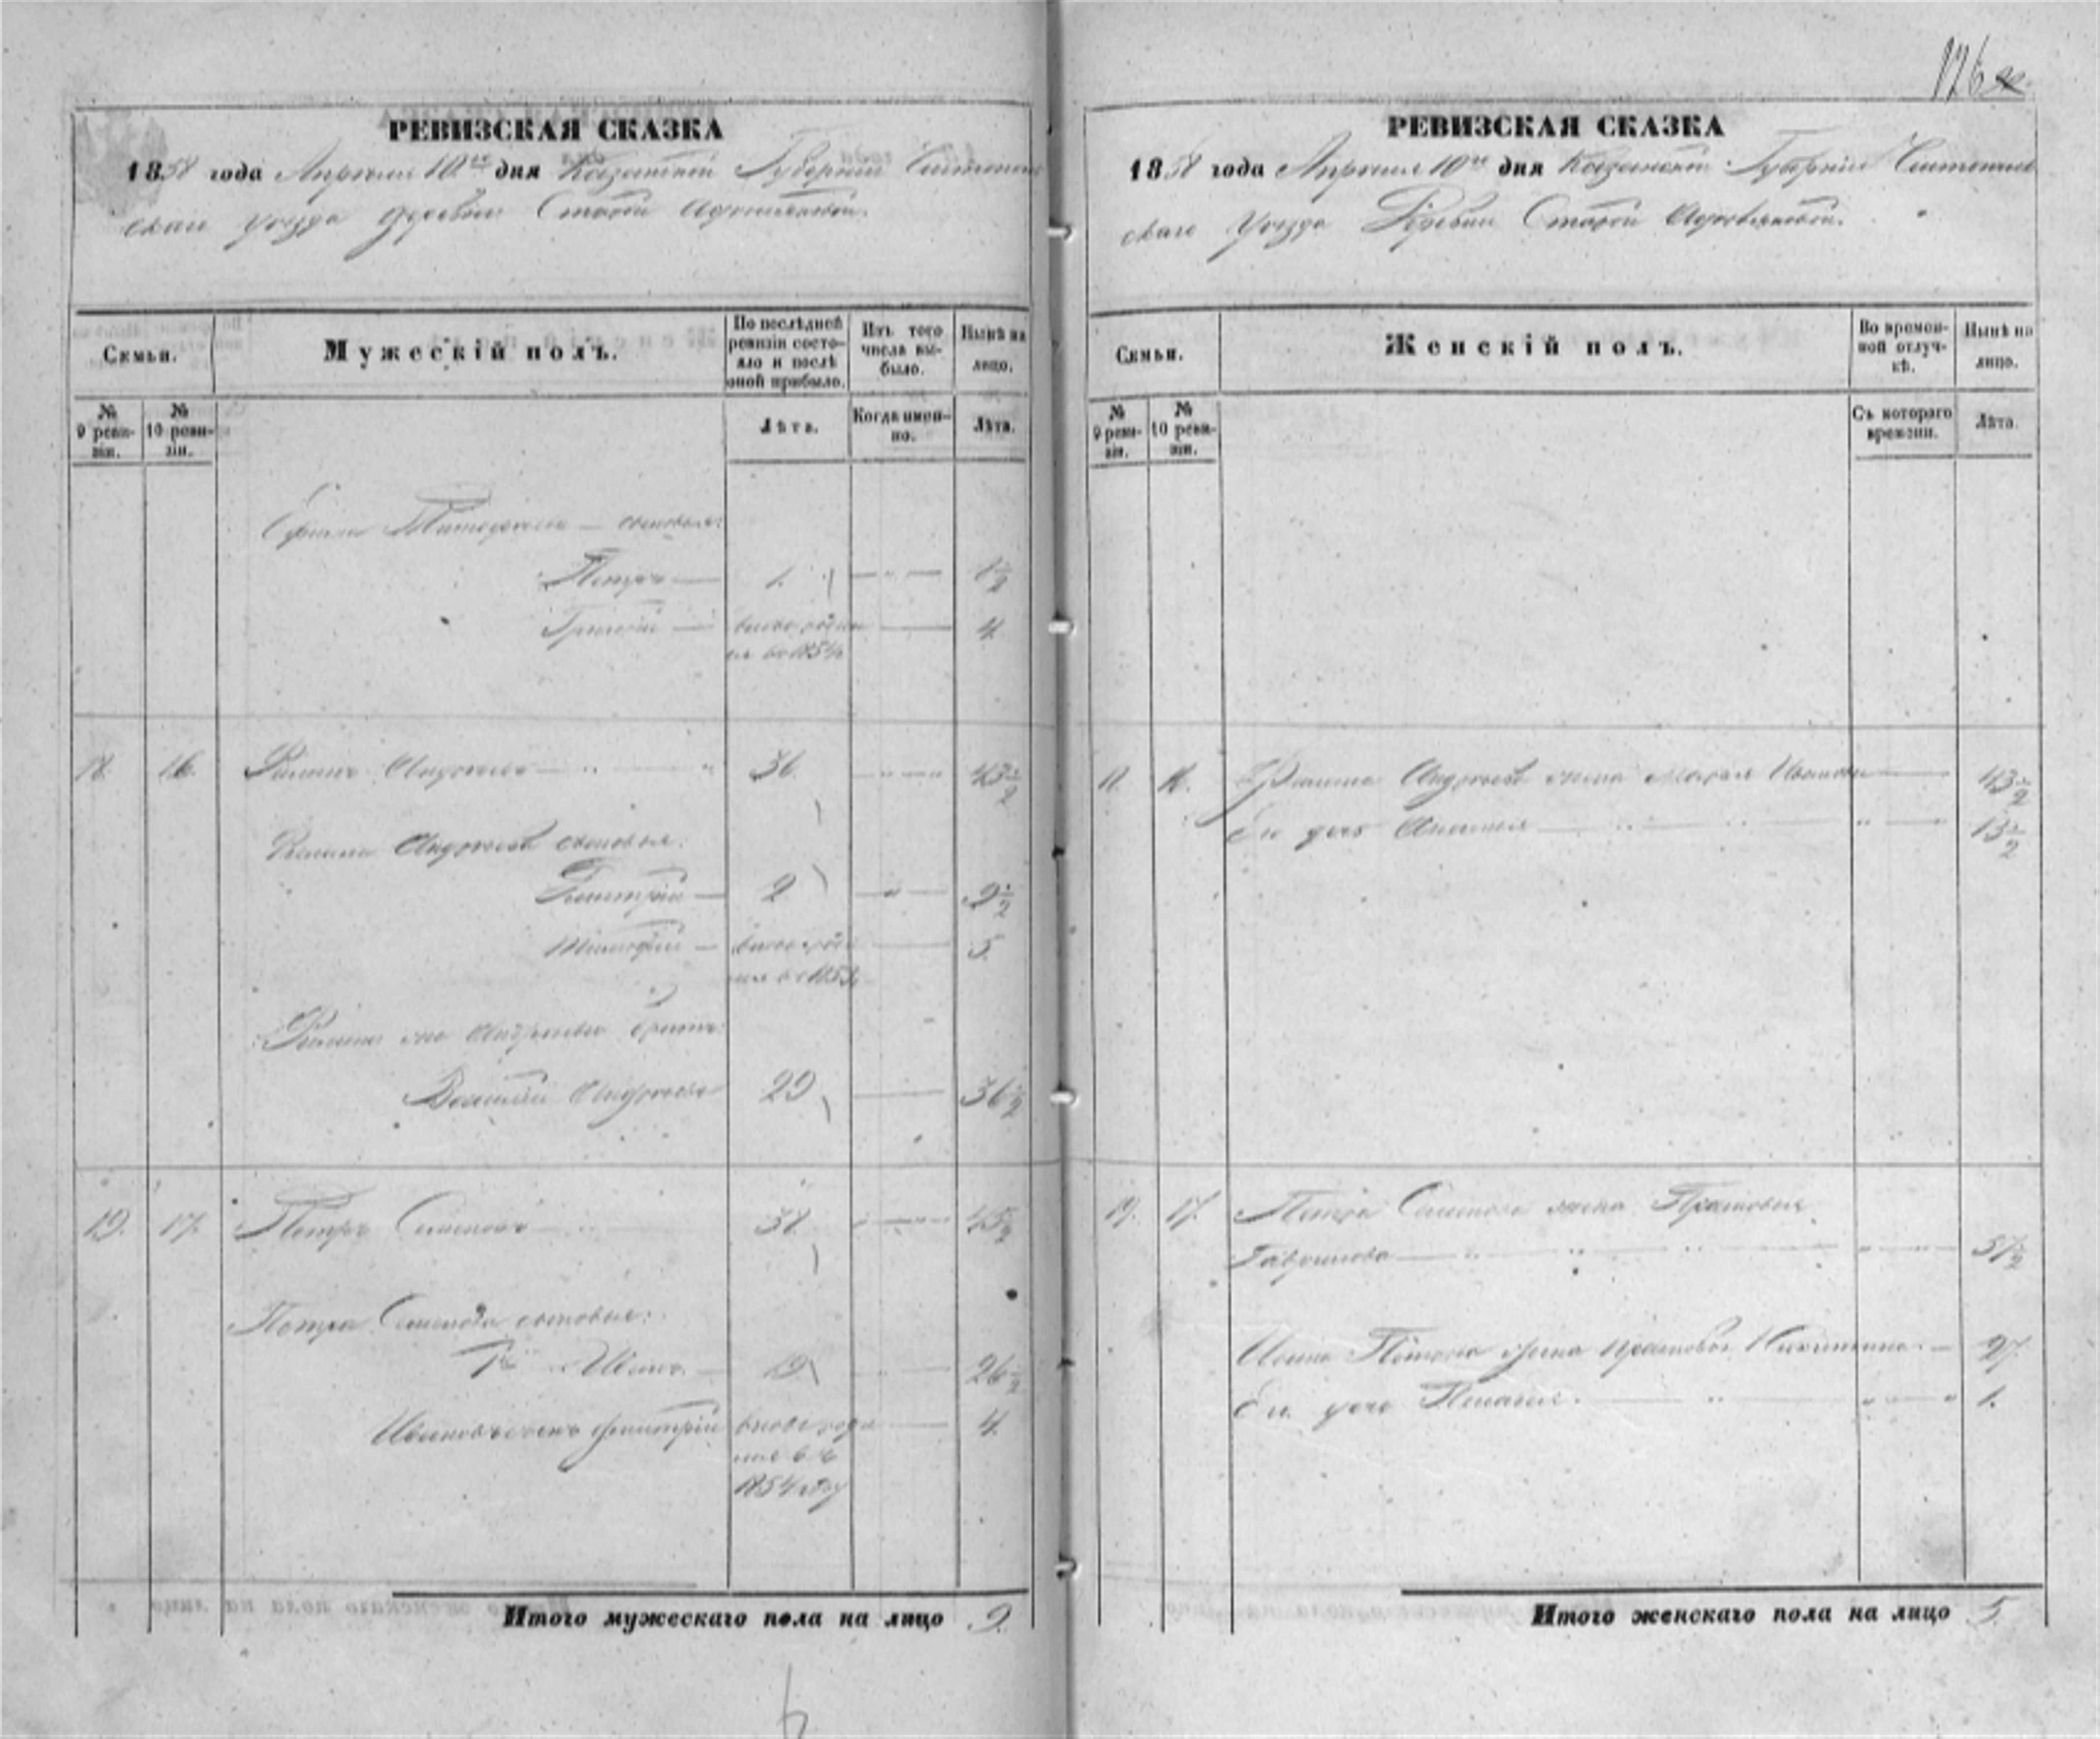 126
РЕВИЗСКАЯ СКАЗКА
1858 года Апреля 10го дня Казанской Губернии
скаго уезда деревни Старой
Семьи.
Мужескій полъ.
По послѣдней ревизіи состояло и послѣ оной прибыло.
Изъ того числа выбыло.
Нынѣ на лицо.
№ 9 ревизіи.
№ 10 ревизіи.
Лѣта.
Когда именно.
Лѣта.
сыновья:
Петръ — 1. 1½
Григорій — вновь 4
1854
18. 16. Андреевъ 36. 43½
Андреева сыновья:
Дмитрій — 2 9½
Тимофей — 5.
1853
Андреева братъ
Василий Андреевъ 29 36½
19. 17. Петръ Семеновъ 38. 45½
Петра Семенова сыновья:
1й Иванъ 19 26½
Ивановъ сынъ Дмитрій вновь роди 4.
1854 году
Итого мужескаго пола на лицо 9.
РЕВИЗСКАЯ СКАЗКА
1858 года Апреля 10го дня Казанской Губернии
скаго Уезда Деревни Старой
Семьи.
Женскій полъ.
Во временной отлучкѣ.
Нынѣ на лицо.
№ 9 ревизіи.
№ 10 ревизіи.
Съ котораго времени.
Лѣта.
Андреева жена Марья Иванова 43½
Его дочь 13½
19. 17. Петра Семенова жена Прасковья
Гаврилова 57½
Ивана Петрова жена Прасковья Никитина 27
Его дочь Пелагея. 1.
Итого женскаго пола на лицо 5.